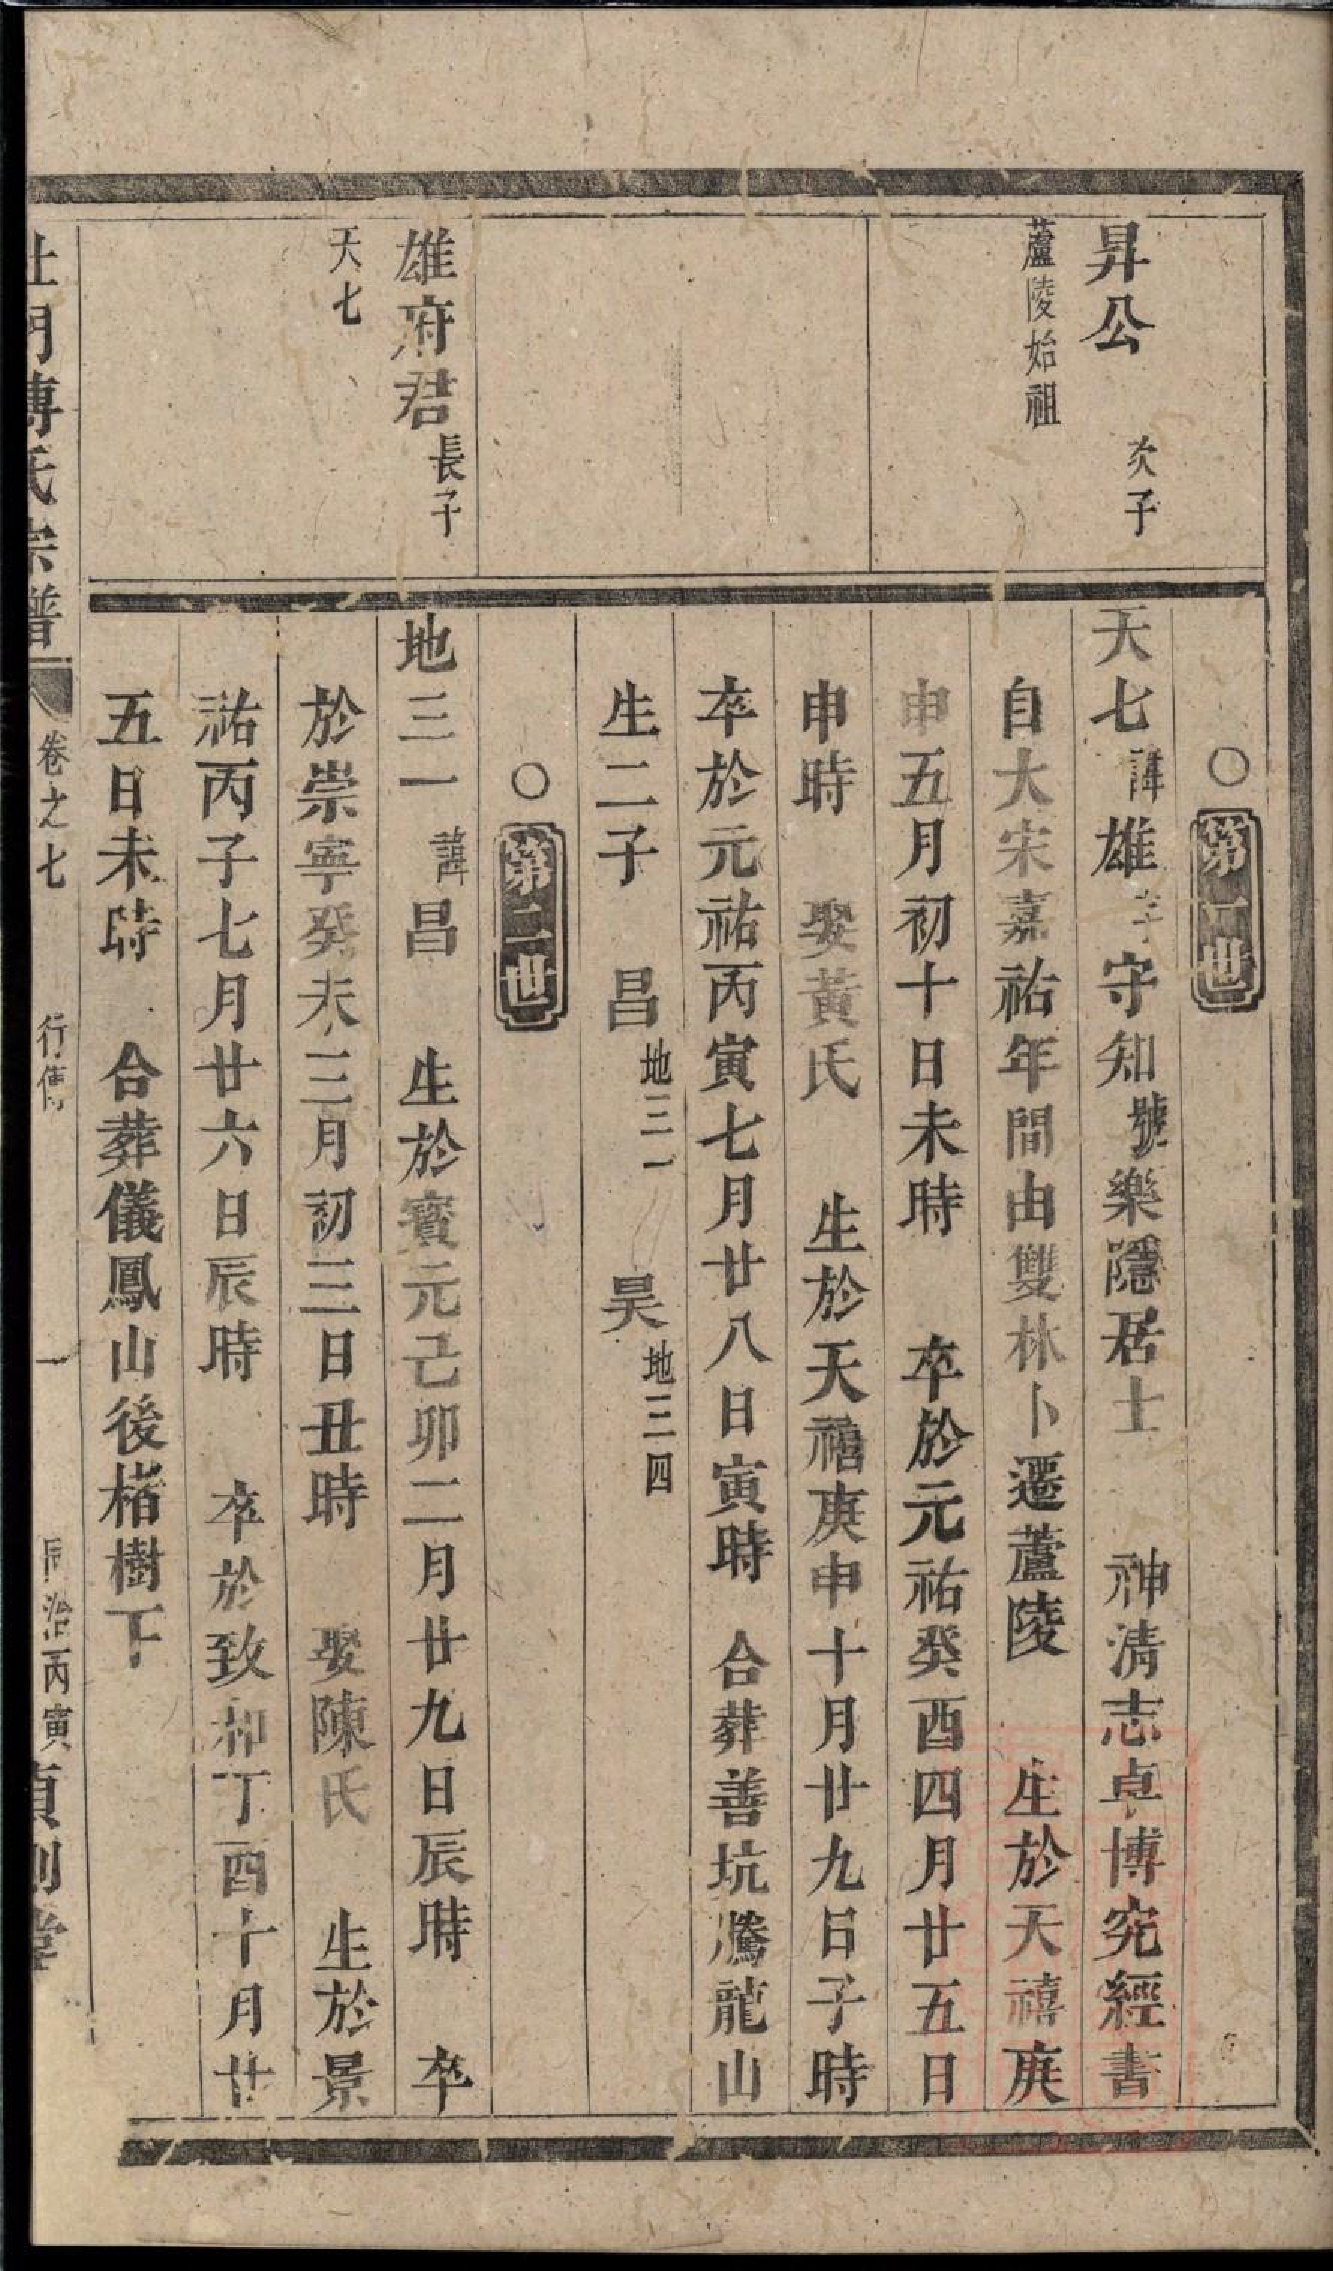 昇公 次子
蘆陵始祖
雄府君 長子
天七
○第一世
天七 諱雄字守知號樂隱居士 神清志卓博究經書
自大宋嘉祐年間由雙林卜遷蘆陵 生於天禧庚
申五月初十日未時 卒於元祐癸酉四月廿五日
申時 娶黃氏 生於天禧庚申十月廿九日子時
卒於元祐丙寅七月廿八日寅時 合葬善坑騰龍山
生二子 昌 地三一 昊 地三四
○第二世
地三一 諱昌 生於寶元己卯二月廿九日辰時 卒
於崇寧癸未三月初三日丑時 娶陳氏 生於景
祐丙子七月廿六日辰時 卒於致和丁酉十月廿
五日未時 合葬儀鳳山後楮樹下
杜門傅氏宗譜 卷之七 行傳 一 同治丙寅